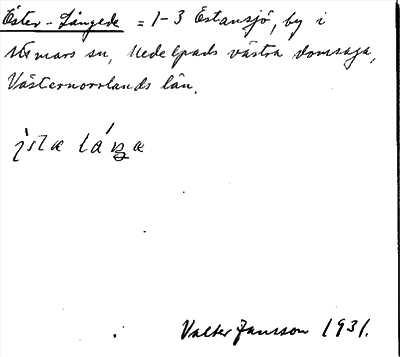 Öster-Långede = 1-3 Estansjö, by i
Stöde sn, Medelpads västra domsaga,
Västernorrlands län.
Valter Jansson 1931.